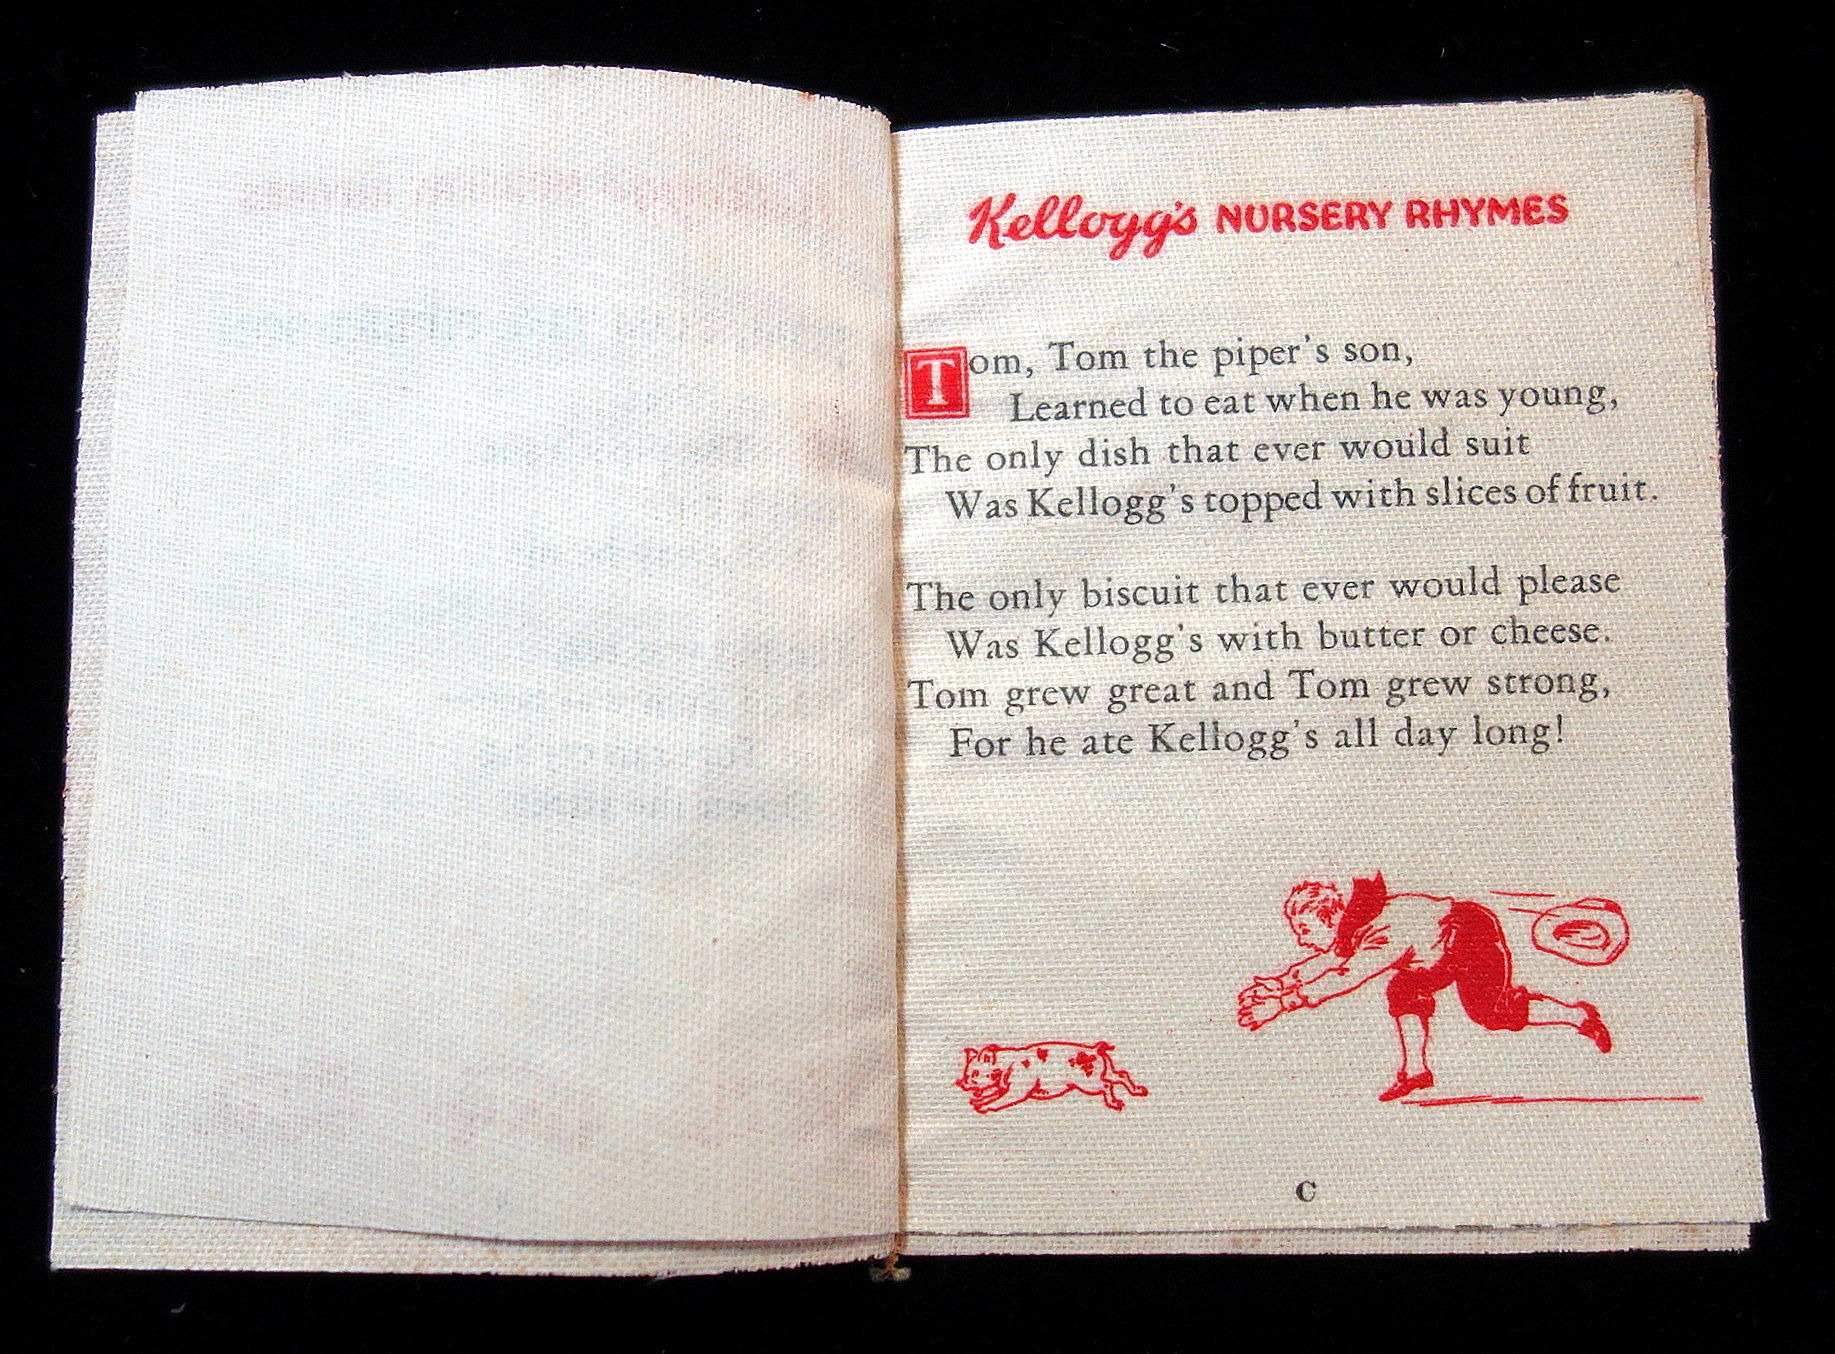 Kellogg's NURSERY RHYMES
Tom, Tom the piper's son,
Learned to eat when he was young,
The only dish that ever would suit
Was Kellogg's topped with slices of fruit.
The only biscuit that ever would please
Was Kellogg's with butter or cheese.
Tom grew great and Tom grew strong,
For he ate Kellogg's all day long!
C